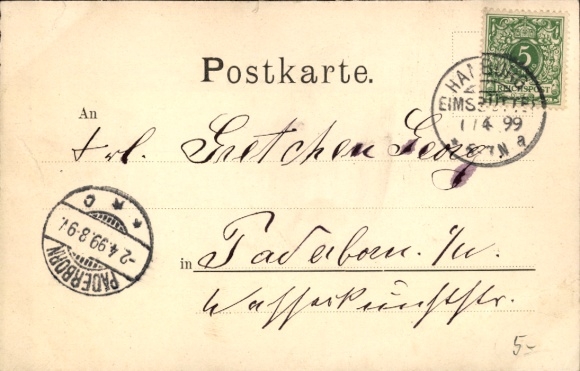 5
REICHSPOST
Postkarte.
HAMBURG
EIMSBÜTTEL
1/4 99
N a
An
Frl. Gretchen Georg
* * c
-2.4.99.8-9V.
PADERBORN
in Paderborn. i/w.
Wasserkunststr.
5-